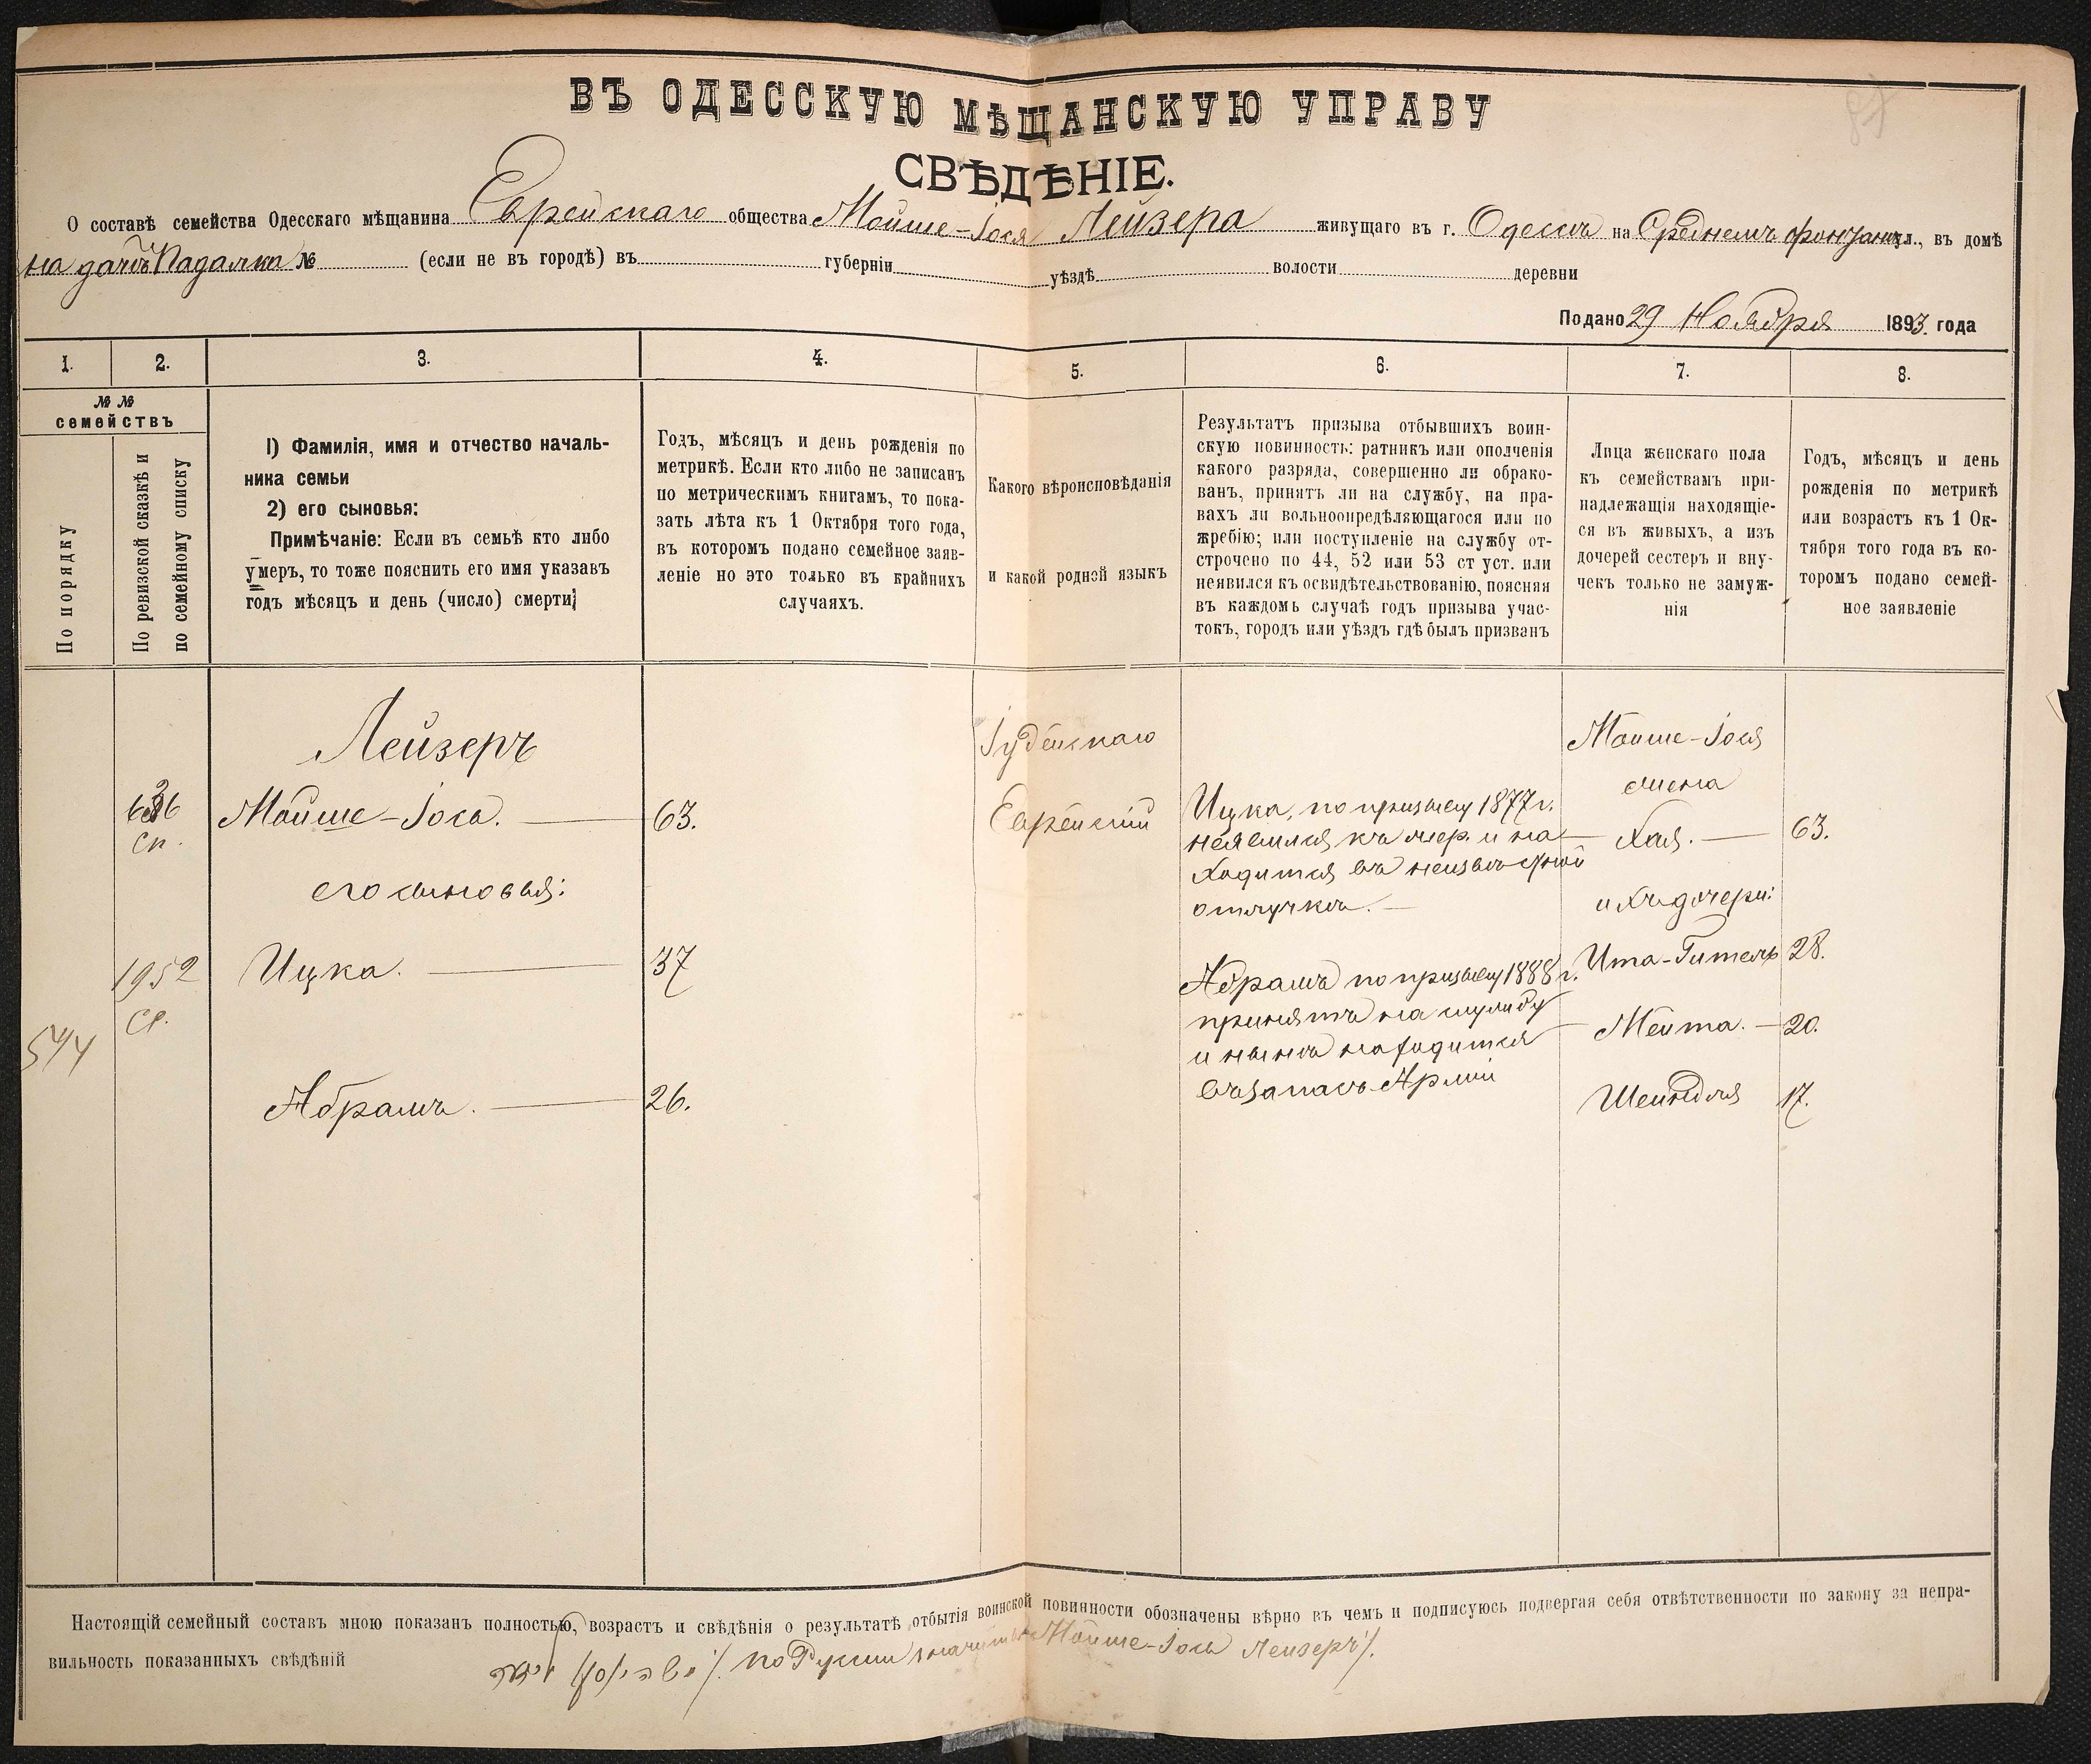 ВЪ ОДЕССКУЮ МѢЩАНСКУЮ УПРАВУ
СВѢДѢНІЕ.
О составѣ семейства Одесскаго мѣщанина Еврейскаго общества Мойше-Іося Лейзера живущаго въ г. Одессѣ на Среднемъ фонтанѣ ул., въ домѣ
на дачѣ Падалка № (если не въ городѣ) въ губерніи уѣздѣ волости деревни
Подано 29 Ноября 1893 года
1. 2. 3. 4. 5. 6. 7. 8.
№ №
семействъ
По порядку
По ревизской сказкѣ и
по семейному списку
1) Фамилія, имя и отчество началь-
ника семьи
2) его сыновья:
Примѣчаніе: Если въ семьѣ кто либо
умеръ, то тоже пояснить его имя указавъ
годъ мѣсяцъ и день (число) смерти;
Годъ, мѣсяцъ и день рожденія по
метрикѣ. Если кто либо не записанъ
по метрическимъ книгамъ, то пока-
зать лѣта къ 1 Октября того года,
въ которомъ подано семейное заяв-
леніе но это только въ крайнихъ
случаяхъ.
Какого вѣроисповѣданія
и какой родной языкъ
Результатъ призыва отбывшихъ воин-
скую повинность: ратникъ или ополченія
какого разряда, совершенно ли обрако-
ванъ, принятъ ли на службу, на пра-
вахъ ли вольноопредѣляющагося или по
жребію; или поступленіе на службу от-
строчено по 44, 52 или 53 ст уст. или
неявился къ освидѣтельствованію, поясняя
въ каждомъ случаѣ годъ призыва учас-
токъ, городъ или уѣздъ гдѣ былъ призванъ
Лица женскаго пола
къ семействамъ при-
надлежащія находящіе-
ся въ живыхъ, а изъ
дочерей сестеръ и вну-
чекъ только не замуж-
нія
Годъ, мѣсяцъ и день
рожденія по метрикѣ
или возрастъ къ 1 Ок-
тября того года въ ко-
торомъ подано семей-
ное заявленіе
544
Сп.
1952
Ср.
Лейзеръ
Мойше-Іось. — 63.
его сыновья:
Ицка. — 37
Абрамъ. — 26.
Іудейскаго
Еврейскій
Ицка, по призыву 1877 г.
неявился къ жер. и на-
ходится въ неизвѣстной
отлучкѣ. —
Абрамъ по призыву 1888 г.
принятъ на службу
и нынѣ находится
въ запасѣ Арміи
Мойше-Іося
жена
Хая. — 63.
и ихъ дочери:
Ита-Гитель 28.
Мейта. — 20.
Шейндля 17.
Настоящій семейный составъ мною показанъ полностью, возрастъ и свѣдѣнія о результатѣ отбытія воинской повинности обозначены вѣрно въ чемъ и подписуюсь подвергая себя отвѣтственности по закону за непра-
вильность показанныхъ свѣдѣній
по Русски значитъ Мойше-Іось Лейзеръ/.